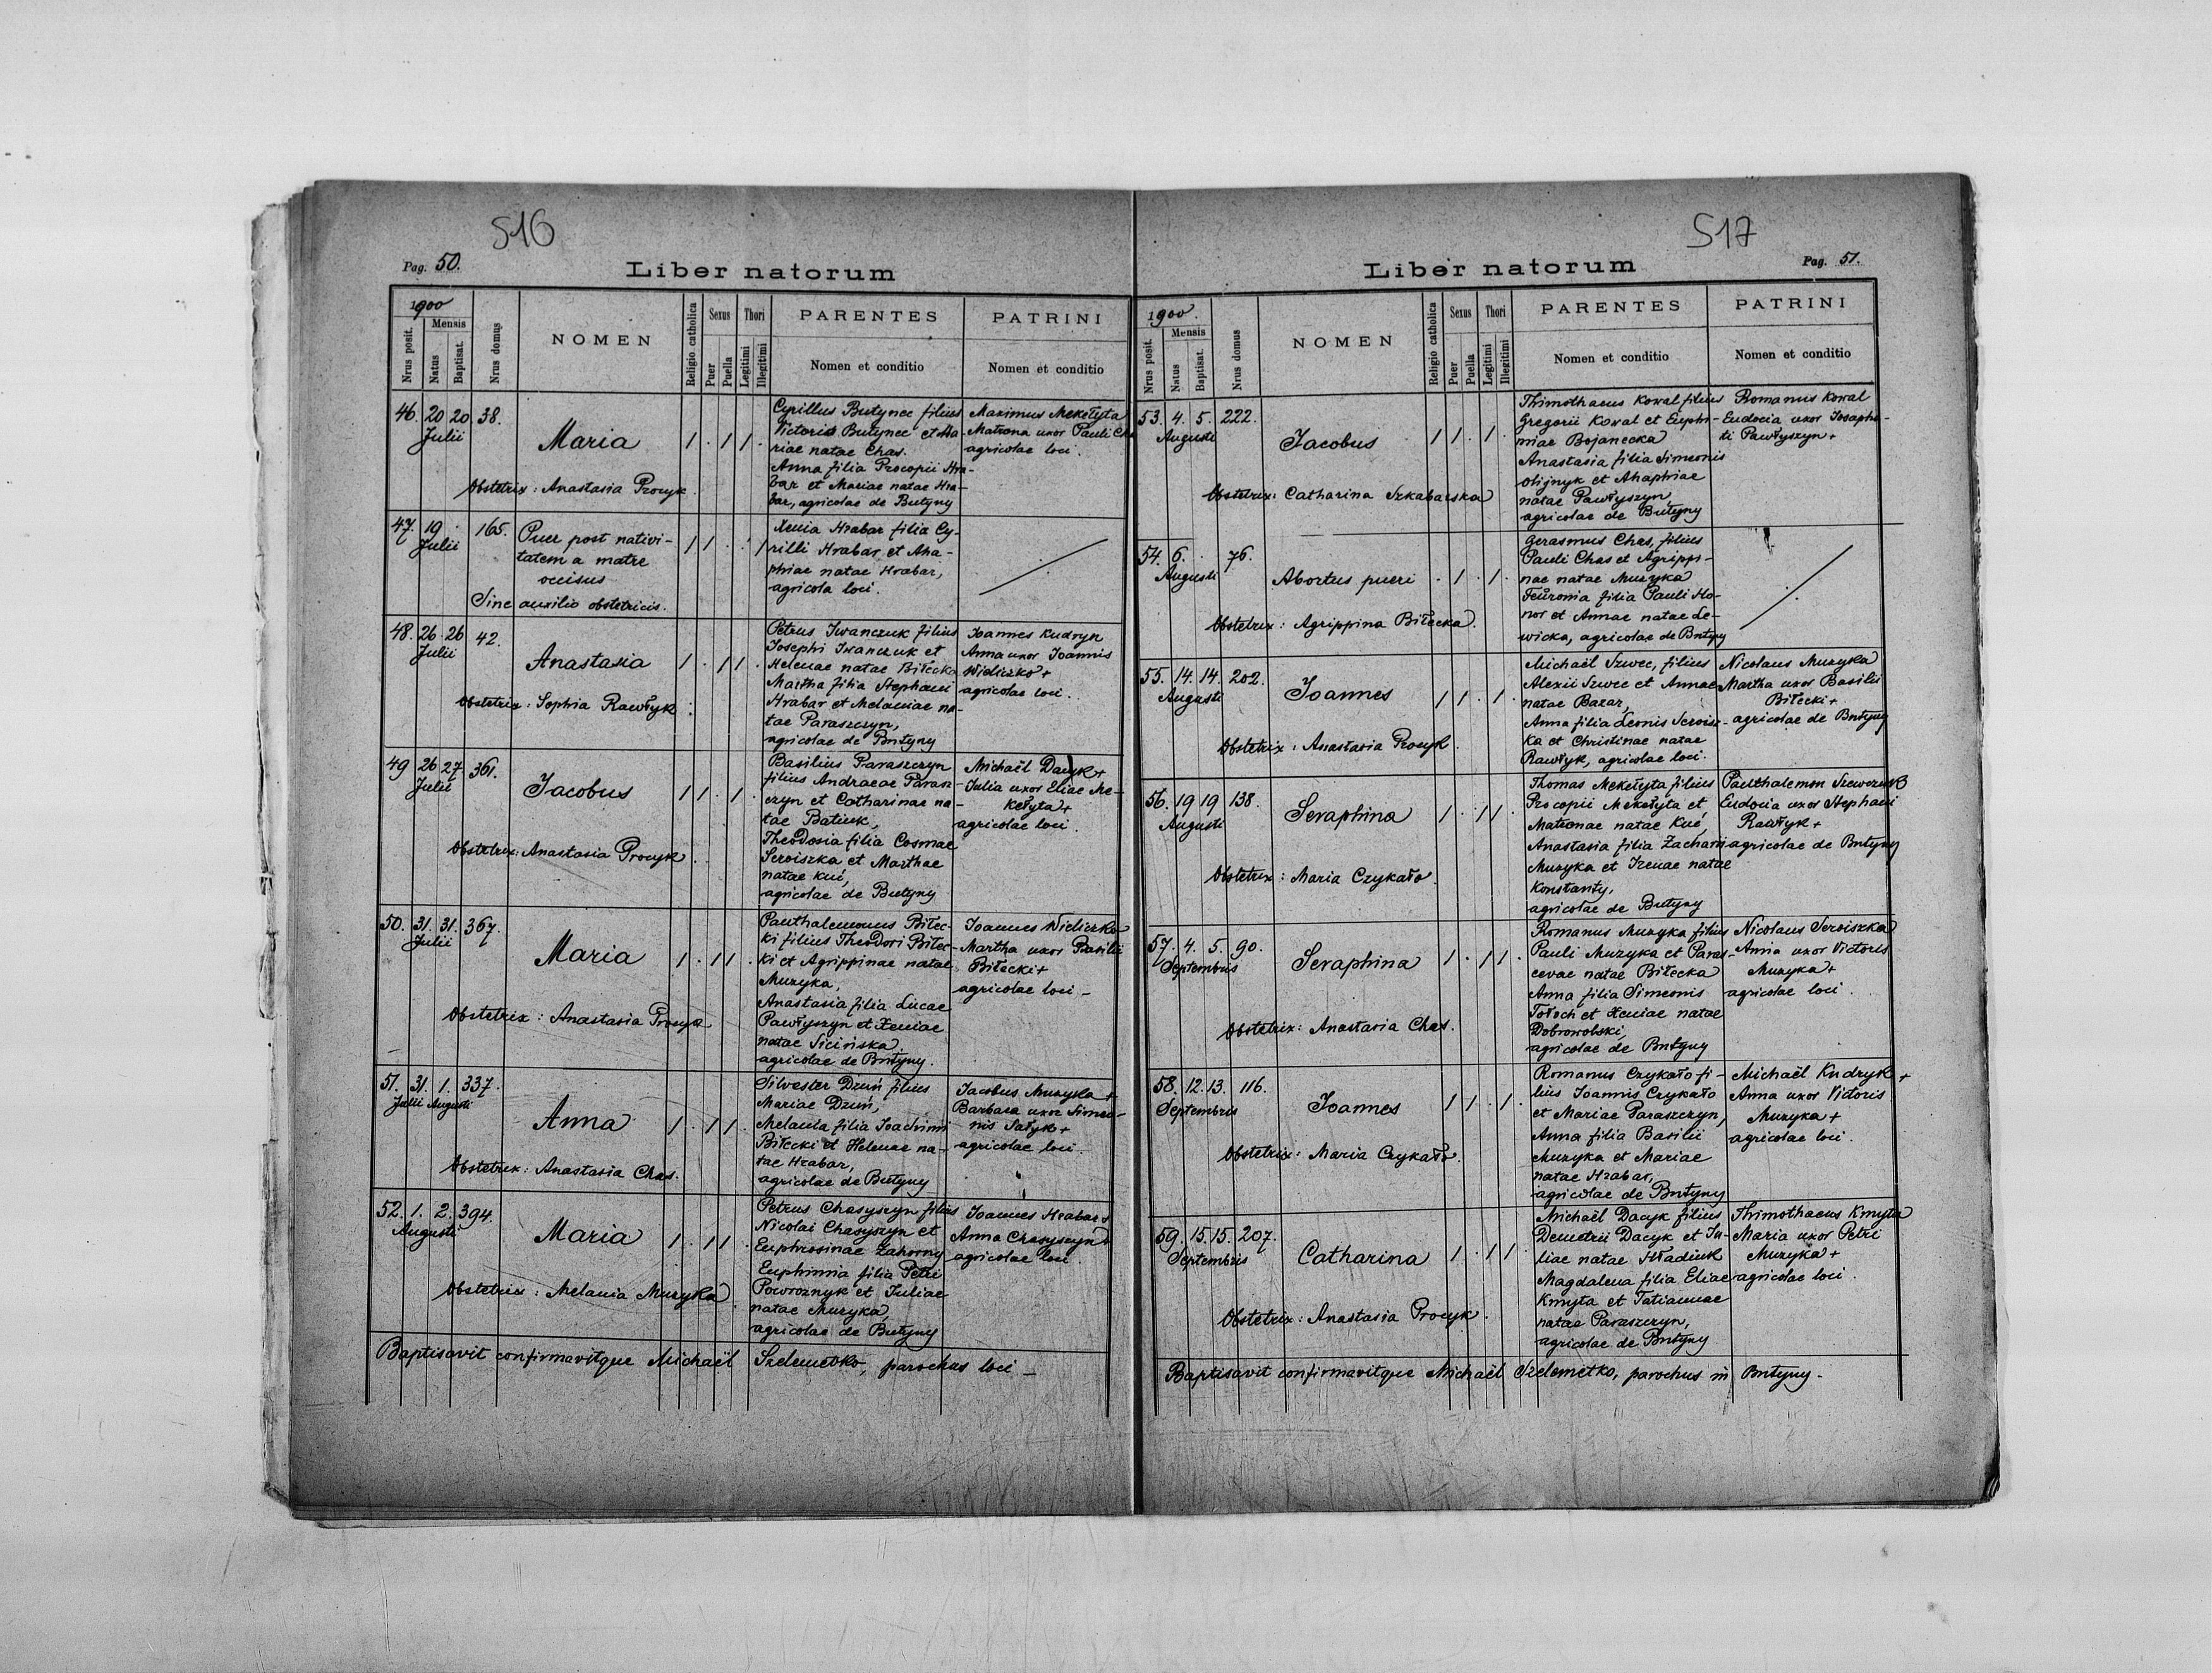 516
Pag. 50.
Liber natorum
1900
Mensis
Nrus posit.
Natus
Baptisat.
Nrus domus
NOMEN
Religio catholica
Sexus
Puer
Puella
Thori
Legitimi
Illegitimi
PARENTES
Nomen et conditio
PATRINI
Nomen et conditio
46. 20 20 38.
Julii
Maria
1 . 1 1 .
Obstetrix: Anastasia Procyk.
Cyrillus Butynec filius
Victoris Butynec et Ma-
riae natae Chas.
Anna filia Procopii Hra-
bar et Mariae natae Hra-
bar, agricolae de Butyny
Maximus Mekełyta
Matrona uxor Pauli
agricolae loci.
47. 19 . 165.
Julii
Puer post nativi-
tatem a matre
occisus
1 1 . . 1
Sine auxilio obstetricis.
Xenia Hrabar filia Cy-
rilli Hrabar et Aha-
phiae natae Hrabar,
agricola loci.
48. 26 26 42.
Julii
Anastasia
1 . 1 1 .
Obstetrix: Sophia Rawłyk
Petrus Iwanczuk filius
Josephi Iwanczuk et
Helenae natae Biłecka
Martha filia Stephani
Hrabar et Melaniae na-
tae Paraszczyn,
agricolae de Butyny
Joannes Kudryn
Anna uxor Joannis
Wieliczko +
agricolae loci.
49 26 27 361.
Julii
Jacobus
1 1 . 1 .
Obstetrix: Anastasia Procyk
Basilius Paraszczyn
filius Andraeae Parasz-
czyn et Catharinae na-
tae Batiuk,
Theodosia filia Cosmae
Serviszka et Marthae
natae Kuć,
agricolae de Butyny
Michaël Dacyk +
Julia uxor Eliae Me-
kełyta +
agricolae loci.
50. 31. 31. 367.
Julii
Maria
1 . 1 1 .
Obstetrix: Anastasia Procyk
Panthalemonus Biłec-
ki filius Theodori Biłec-
ki et Agrippinae natae
Muzyka,
Anastasia filia Lucae
Pawłyszyn et Xeniae
natae Sicińska,
agricolae de Butyny.
Joannes Wieliczko
Martha uxor Basilii
Biłecki +
agricolae loci -
51. 31. 1. 337.
Julii Augusti
Anna
1 . 1 1 .
Obstetrix: Anastasia Chas.
Silvester Dzuń filius
Mariae Dzuń,
Melania filia Joachimi
Biłecki et Helenae na-
tae Hrabar,
agricolae de Butyny
Jacobus Muzyka +
Barbara uxor Simeo-
nis Sałyk +
agricolae loci.
52. 1. 2. 394.
Augusti
Maria
1 . 1 1 .
Obstetrix: Melania Muzyka
Petrus Chasyszyn filius
Nicolai Chasyszyn et
Euphrosinae Zahorny
Euphimia filia Petri
Powroznyk et Juliae
natae Muzyka,
agricolae de Butyny
Joannes Hrabar +
Anna Chasyszyn +
agricolae loci.
Baptisavit confirmavitque Michaël Szelemetko, parochus loci -
517
Liber natorum
Pag. 51.
1900.
Mensis
Nrus posit.
Natus
Baptisat.
Nrus domus
NOMEN
Religio catholica
Sexus
Puer
Puella
Thori
Legitimi
Illegitimi
PARENTES
Nomen et conditio
PATRINI
Nomen et conditio
53. 4. 5. 222.
Augusti
Jacobus
1 1 . 1 .
Obstetrix: Catharina Szkabarska
Thimothaeus Kowal filius
Gregorii Kowal et Euphi-
miae Bojanecka
Anastasia filia Simeonis
Olijnyk et Ahaphiae
natae Pawłyszyn,
agricolae de Butyny
Romanus Kowal
Eudocia uxor Josapha-
ti Pawłyszyn +
54. 6. . 76.
Augusti
Abortus pueri
. 1 . 1 .
Obstetrix: Agrippina Biłecka.
Gerasmus Chas, filius
Pauli Chas et Agrippi-
nae natae Muzyka
Feuronia filia Pauli Ho-
nor et Annae natae Le-
wicka, agricolae de Butyny
55. 14. 14. 202.
Augusti
Joannes
1 1 . 1 .
Obstetrix: Anastasia Procyk.
Michaël Szwec, filius
Alexii Szwec et Annae
natae Bazar,
Anna filia Leonis Serwisz-
ka et Christinae natae
Rawłyk, agricolae loci.
Nicolaus Muzyka
Martha uxor Basilii
Biłecki +
agricolae de Butyny
56. 19 19 138.
Augusti
Seraphina
1 . 1 1 .
Obstetrix: Maria Czykało.
Thomas Mekełyta filius
Procopii Mekełyta et
Matronae natae Kuć,
Anastasia filia Zachariae
Muzyka et Irenae natae
Konstanty,
agricolae de Butyny
Panthalemon Szewczuk
Eudocia uxor Stephani
Rawłyk +
agricolae de Butyny
57. 4. 5. 90.
Septembris
Seraphina
1 . 1 1 .
Obstetrix: Anastasia Chas.
Romanus Muzyka filius
Pauli Muzyka et Paras-
cevae natae Biłecka
Anna filia Simeonis
Tołoch et Xeniae natae
Dobrowolski,
agricolae de Butyny
Nicolaus Serviszka
Anna uxor Victoris
Muzyka +
agricolae loci.
58. 12. 13. 116.
Septembris
Joannes
1 1 . 1 .
Obstetrix: Maria Czykało.
Romanus Czykało fi-
lius Joannis Czykało
et Mariae Paraszczyn,
Anna filia Basilii
Muzyka et Mariae
natae Hrabar,
agricolae de Butyny
Michaël Kudryk +
Anna uxor Victoris
Muzyka +
agricolae loci.
59. 15. 15. 207.
Septembris
Catharina
1 . 1 1 .
Obstetrix: Anastasia Procyk.
Michaël Dacyk filius
Demetrii Dacyk et Ju-
liae natae Hładiuk
Magdalena filia Eliae
Kmyta et Tatiannae
natae Paraszczyn,
agricolae de Butyny
Thimothaeus Kmyta
Maria uxor Petri
Muzyka +
agricolae loci.
Baptisavit confirmavitque Michaël Szelemetko, parochus in Butyny -